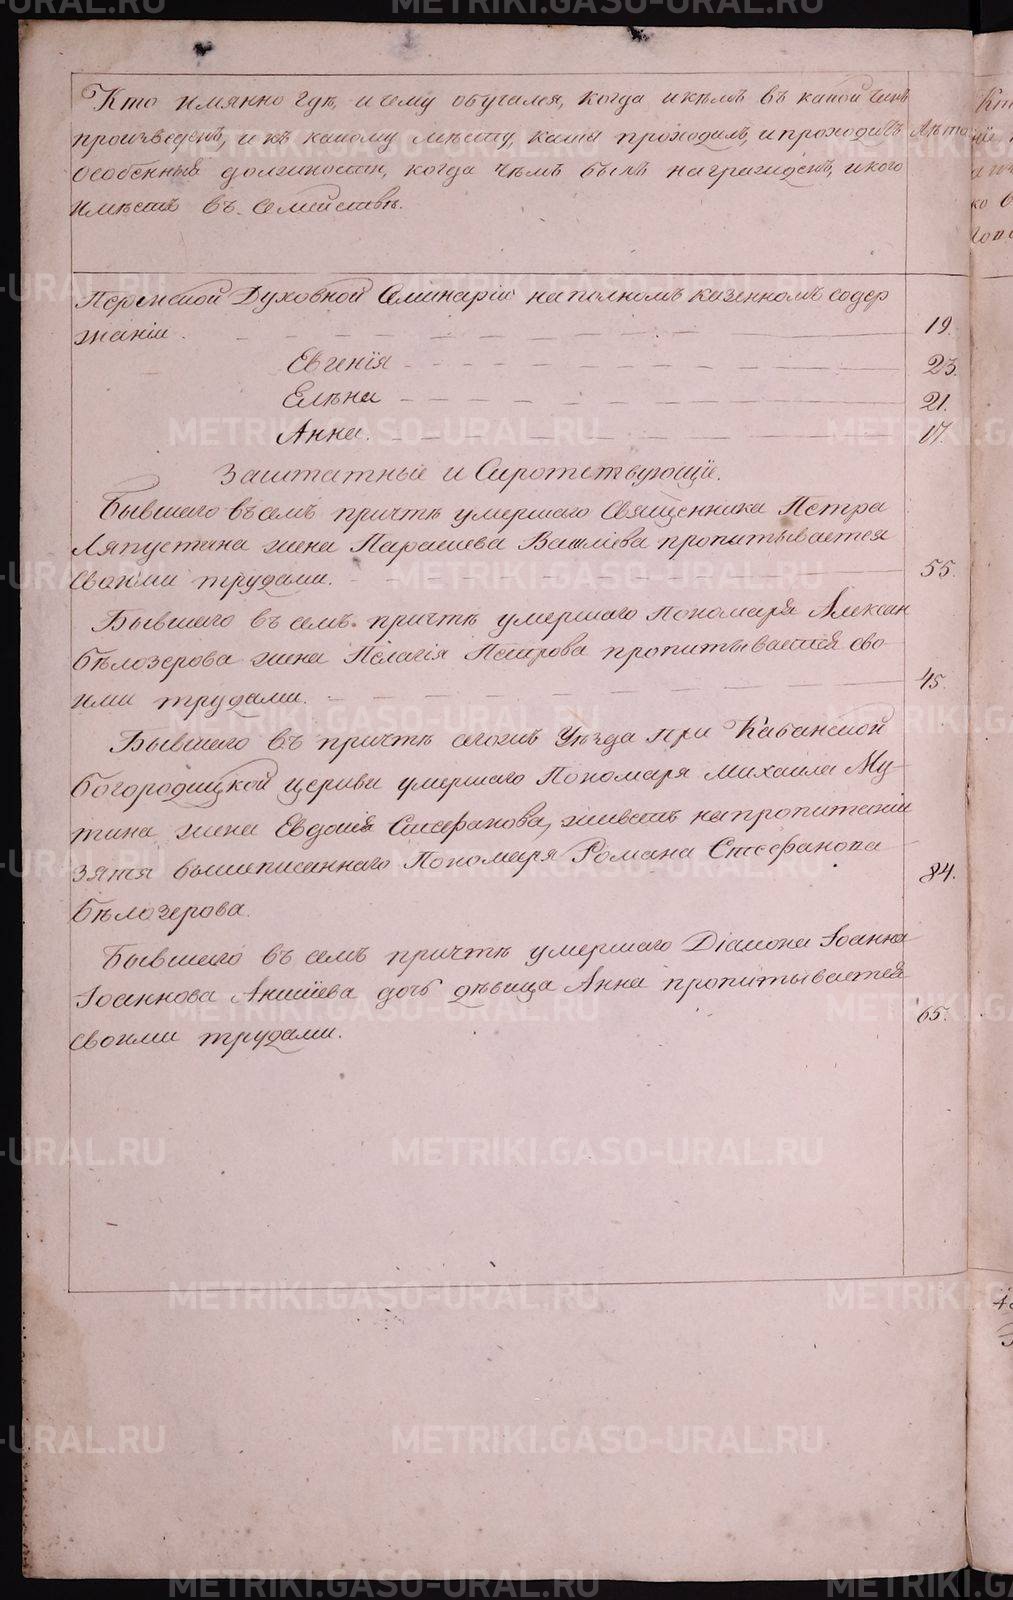 Кто имянно гдѣ, и чему обучался, когда и кѣмъ въ какой чинъ
произведенъ, и къ какому мѣсту, какія проходилъ, и проходитъ Лѣта
особенныя должности, когда чѣмъ былъ награжденъ, и кого
имѣетъ въ семействѣ.
Пермской Духовной Семинаріи на полномъ казенномъ содер
жаніи. 19.
Евгенія 23.
Елена 21.
Анна. 17.
Заштатные и Сиротствующіе.
Бывшаго въ семъ причтѣ умершаго Священника Петра
Ляпустина жена Параскева Васильева пропитывается
своими трудами. 55.
Бывшаго въ семъ причтѣ умершаго Пономаря Алексан
Бѣлозерова жена Пелагія Петрова пропитывается сво
ими трудами. 45.
Бывшаго въ причтѣ сегожъ Уѣзда при Кабанской
Богородицкой церкви умершаго Пономаря Михаила Му
тина жена Евдокія Стефанова, живетъ на пропитаніи
зятя вышеписаннаго Пономаря Романа Стефанова 84.
Бѣлозерова.
Бывшаго въ семъ причтѣ умершаго Діакона Іоанна
Іоаннова Акишева дочь дѣвица Анна пропитывается
своими трудами. 65.
METRIKI.GASO-URAL.RU